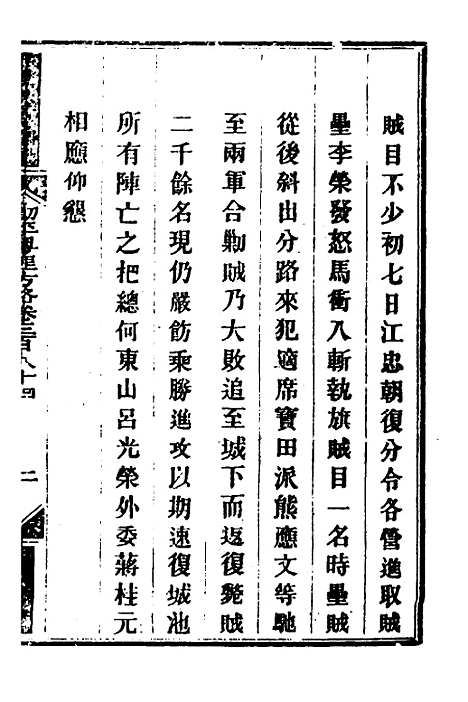 賊目不少初七日江忠朝復分令各營進取賊
壘李榮發怒馬衝入斬執旗賊目一名時壘賊
從後斜出分路來犯適席寶田派熊應文等馳
至兩軍合勦賊乃大敗追至城下而返復斃賊
二千餘名現仍嚴飭乘勝進攻以期速復城池
所有陣亡之把總何東山呂光榮外委蔣桂元
相應仰懇
平粵匪方略卷三百八十四
二